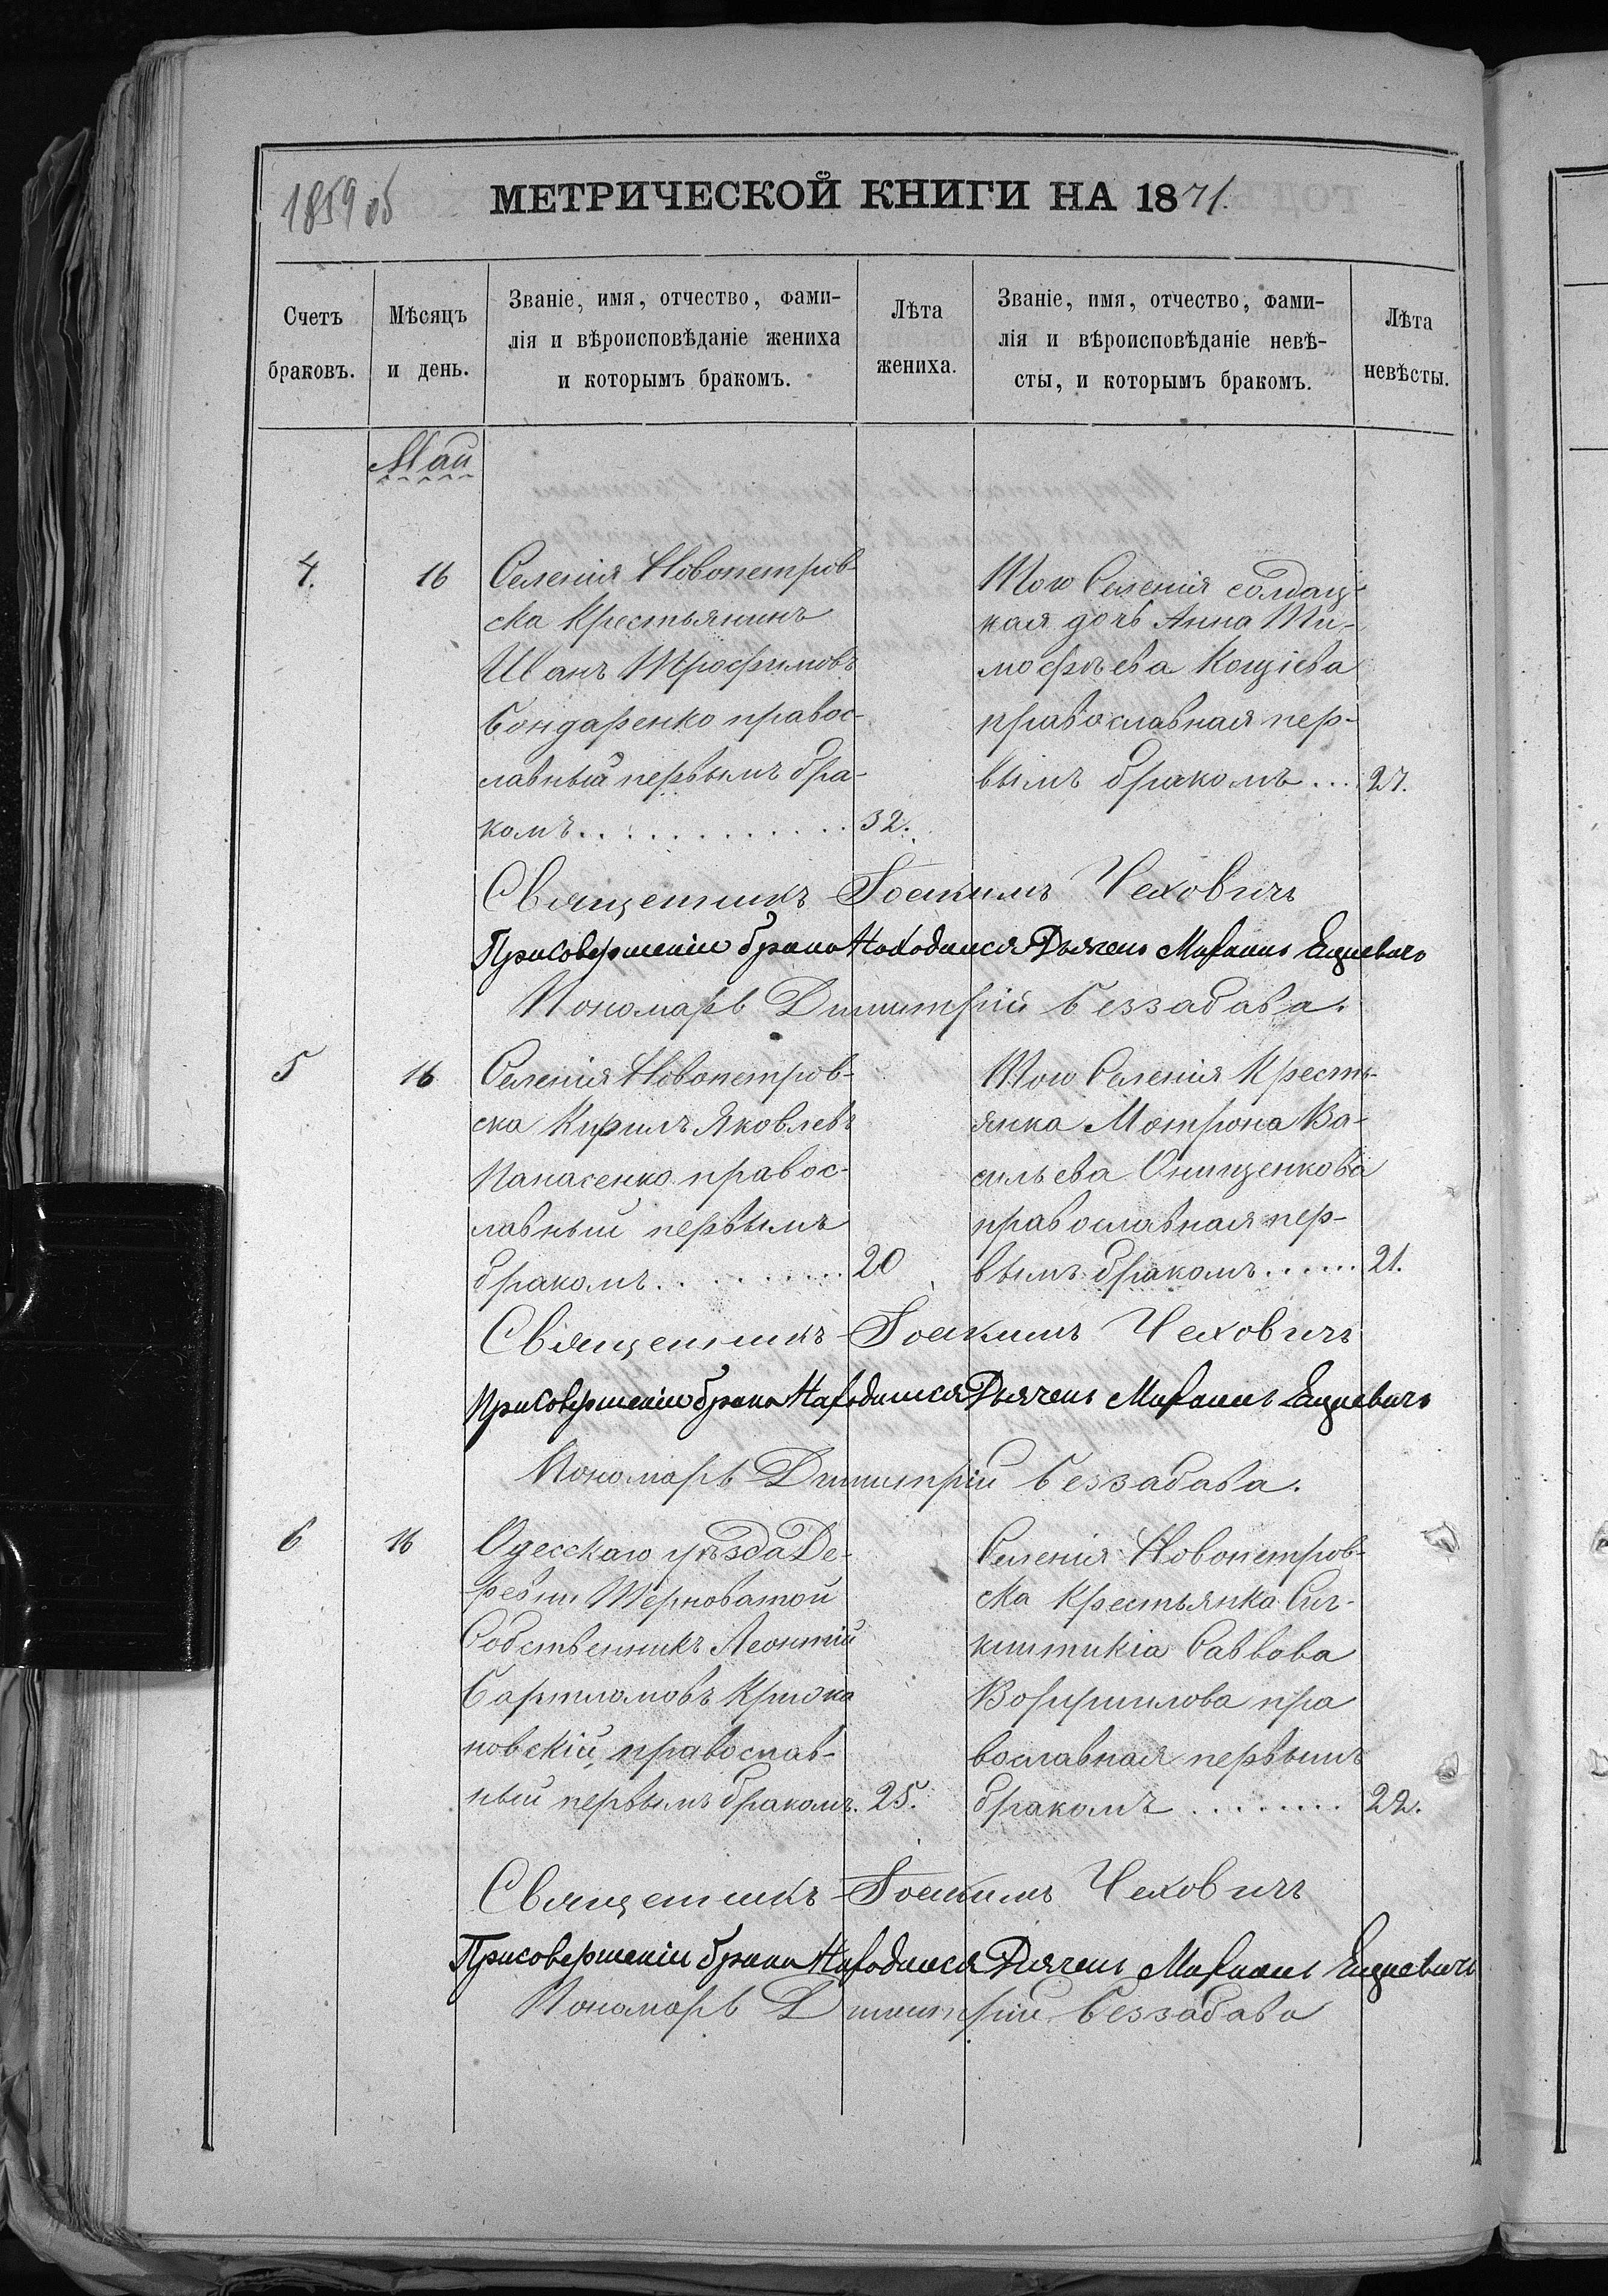 1859 об
МЕТРИЧЕСКОЙ КНИГИ НА 1871.
Счетъ браковъ.
Мѣсяцъ и день.
Званіе, имя, отчество, фами-
лія и вѣроисповѣданіе жениха
и которымъ бракомъ.
Лѣта жениха.
Званіе, имя, отчество, фами-
лія и вѣроисповѣданіе невѣ-
сты, и которымъ бракомъ.
Лѣта невѣсты.
Май
4. 16
Селенія Новопетров-
ска Крестьянинъ
Иванъ Трофимовъ
Бондаренко правос-
лавный первымъ бра-
комъ............ 32.
Того Селенія солдат-
кая дочь Анна Ти-
мофѣева Кощіева
православная пер-
вымъ бракомъ... 27.
Священникъ Іоакимъ Чеховичъ
При совершеніи брака Находился Дьячекъ Михаилъ
Пономарь Димитрій Беззабава.
5 16
Селенія Новопетров-
ска Кирилъ Яковлевъ
Панасенко правос-
лавный первымъ
бракомъ.......... 20
Того Селенія Кресть-
янка Мотрона Ва-
сильева Онищенкова
православная пер-
вымъ бракомъ...... 21.
Священникъ Іоакимъ Чеховичъ
При совершеніи брака Находился Дьячекъ Михаилъ
Пономарь Димитрій Беззабава.
6 16
Одесскаго уѣзда Де-
ревни Терноватой
Собственникъ Леонтій
Вартломовъ
новскій, православ-
ный первымъ бракомъ. 25.
Селенія Новопетров-
ска Крестьянка Син-
клитикіа Саввова
пра
вославная первымъ
бракомъ ........ 22.
Священникъ Іоакимъ Чеховичъ
При совершеніи брака Находился Дьячекъ Михаилъ
Пономарь Димитрій Беззабава